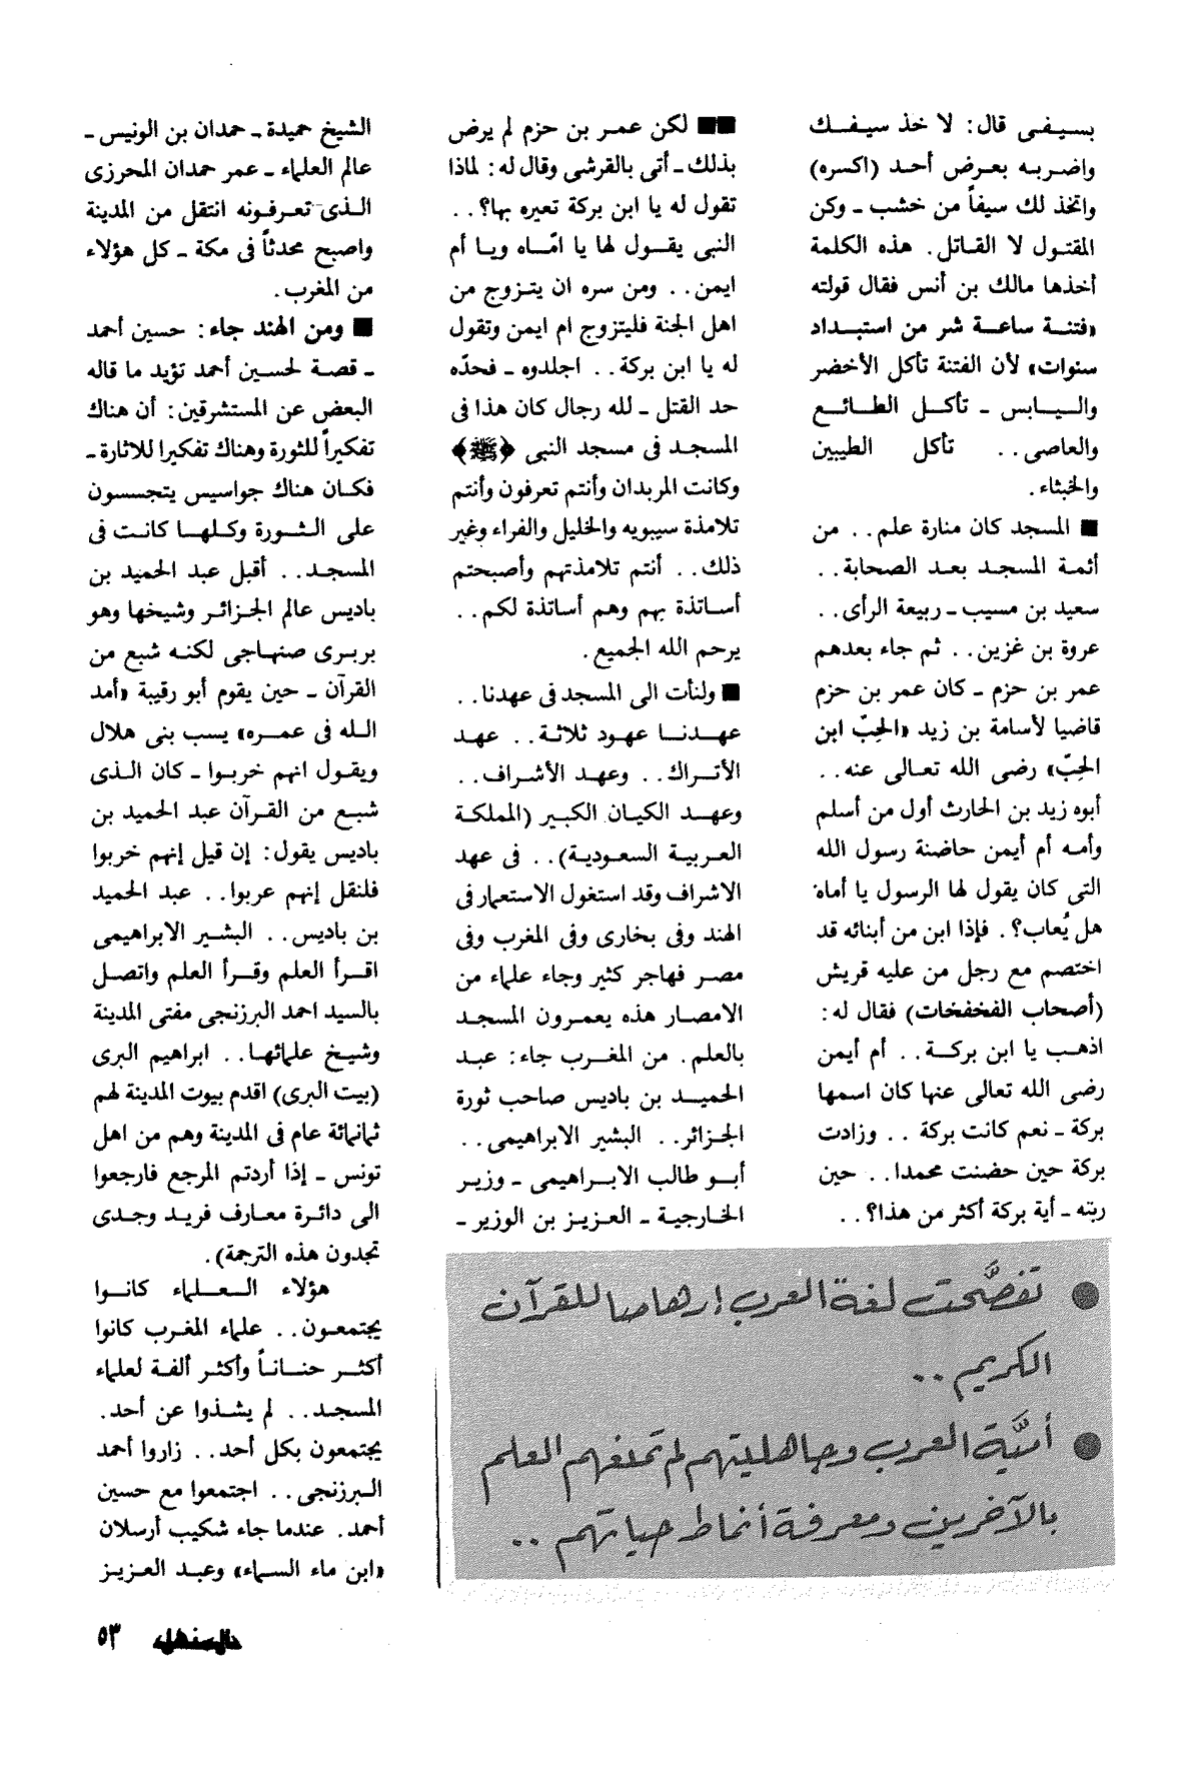 بسيفى قال: لا خذ سيفك
واضربه بعرض أحد (اكسره)
واتخذ لك سيفاً من خشب ـ وكن
المقتول لا القاتل. هذه الكلمة
أخذها مالك بن أنس فقال قولته
«فتنة ساعة شر من استبداد
سنوات» لأن الفتنة تأكل الأخضر
واليابس ـ تأكل الطائع
والعاصى.. تأكل الطيبين
والخبثاء.
■ المسجد كان منارة علم.. من
أئمة المسجد بعد الصحابة..
سعيد بن مسيب ـ ربيعة الرأى..
عروة بن غزين.. ثم جاء بعدهم
عمر بن حزم ـ كان عمر بن حزم
قاضيا لأسامة بن زيد «الحِبّ ابن
الحِبّ» رضى الله تعالى عنه..
أبوه زيد بن الحارث أول من أسلم
وأمه أم أيمن حاضنة رسول الله
التى كان يقول لها الرسول يا أماه
هل يُعاب؟. فإذا ابن من أبنائه قد
اختصم مع رجل من عليه قريش
(أصحاب الفخفخات) فقال له:
اذهب يا ابن بركة.. أم أيمن
رضى الله تعالى عنها كان اسمها
بركة ـ نعم كانت بركة .. وزادت
بركة حين حضنت محمدا.. حين
ربته ـ أية بركة أكثر من هذا؟..
■■ لكن عمر بن حزم لم يرض
بذلك ـ أتى بالقرشى وقال له: لماذا
تقول له يا ابن بركة تعيره بها؟..
النبى يقول لها يا امّاه ويا أم
ايمن.. ومن سره ان يتزوج من
اهل الجنة فليتزوج ام ايمن وتقول
له يا ابن بركة.. اجلدوه ـ فحدّه
حد القتل ـ لله رجال كان هذا فى
المسجد فى مسجد النبى ﴿ﷺ﴾
وكانت المربدان وأنتم تعرفون وأنتم
تلامذة سيبويه والخليل والفراء وغير
ذلك.. أنتم تلامذتهم وأصبحتم
أساتذة بهم وهم أساتذة لكم..
يرحم الله الجميع.
■ ولنأت الى المسجد فى عهدنا..
عهدنا عهود ثلاثة.. عهد
الأتراك.. وعهد الأشراف..
وعهد الكيان الكبير (المملكة
العربية السعودية).. فى عهد
الاشراف وقد استغول الاستعمار فى
الهند وفى بخارى وفى المغرب وفى
مصر فهاجر كثير وجاء علماء من
الامصار هذه يعمرون المسجد
بالعلم. من المغرب جاء: عبد
الحميد بن باديس صاحب ثورة
الجزائر.. البشير الابراهيمى..
أبو طالب الابراهيمى ـ وزير
الخارجية ـ العزيز بن الوزير ـ
الشيخ حميدة ـ حمدان بن الونيس ـ
عالم العلماء ـ عمر حمدان المحرزى
الذى تعرفونه انتقل من المدينة
واصبح محدثاً فى مكة ـ كل هؤلاء
من المغرب.
■ ومن الهند جاء: حسين أحمد
ـ قصة لحسين أحمد تؤيد ما قاله
البعض عن المستشرقين: أن هناك
تفكيراً للثورة وهناك تفكيرا للاثارة ـ
فكان هناك جواسيس يتجسسون
على الثورة وكلها كانت فى
المسجد.. أقبل عبد الحميد بن
باديس عالم الجزائر وشيخها وهو
بربرى صنهاجى لكنه شبع من
القرآن ـ حين يقوم أبو رقيبة «أمد
الله فى عمره» يسب بنى هلال
ويقول انهم خربوا ـ كان الذى
شبع من القرآن عبد الحميد بن
باديس يقول: إن قيل إنهم خربوا
فلنقل إنهم عربوا.. عبد الحميد
بن باديس.. البشير الابراهيمى
اقرأ العلم وقرأ العلم واتصل
بالسيد احمد البرزنجى مفتى المدينة
وشيخ علمائها.. ابراهيم البرى
(بيت البرى) اقدم بيوت المدينة لهم
ثمانمائة عام فى المدينة وهم من اهل
تونس ـ إذا أردتم المرجع فارجعوا
الى دائرة معارف فريد وجدى
تجدون هذه الترجمة).
هؤلاء العلماء كانوا
يجتمعون.. علماء المغرب كانوا
أكثر حناناً وأكثر ألفة لعلماء
المسجد.. لم يشذوا عن أحد.
يجتمعون بكل أحد.. زاروا أحمد
البرزنجى.. اجتمعوا مع حسين
أحمد. عندما جاء شكيب أرسلان
«ابن ماء السماء» وعبد العزيز
● تفصَّحت لغة العرب إرهاصا للقرآن
الكريم..
● أميَّة العرب وجاهليتهم لم تمنعهم العلم
بالآخرين ومعرفة أنماط حياتهم..
المنهل ٥٣